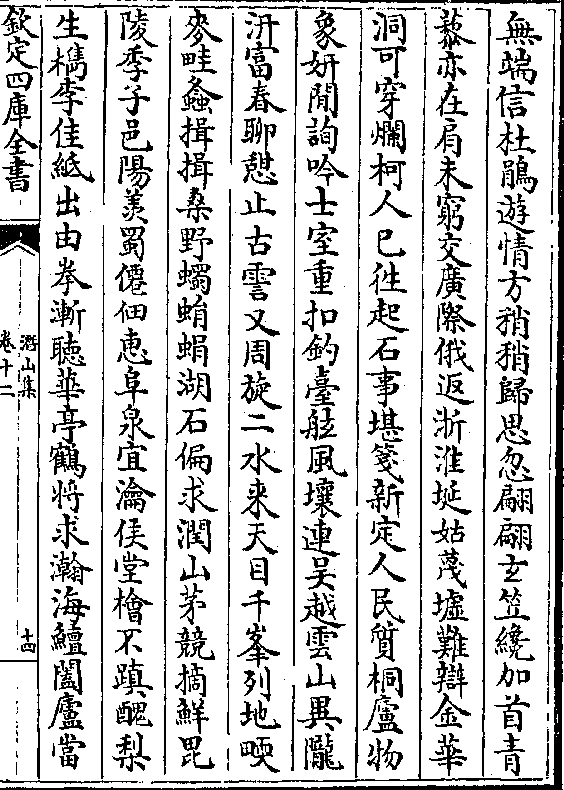 無端信杜鵑遊情方稍稍歸思忽翩翩玄笠纔加首青
藜亦在肩未窮交廣際俄返浙淮堧姑蔑墟難辯金華
洞可穿爛柯人已徃起石事堪箋新定人民質桐廬物
象妍閒詢吟士室重扣釣臺舷風壤連吴越雲山異隴
汧富春聊憇止古霅又周旋二水来天目千峯列地
麥畦螽揖揖桑野蠋蜎蜎湖石偏求潤山茅競摘鮮毘
陵季子邑陽羡蜀僊佃恵阜泉宜瀹侯堂檜不蹎醜梨
生檇李佳紙出由拳漸聴華亭鶴将求瀚海鱣闔廬當
欽定四庫全書
潛山集
卷十二
十四